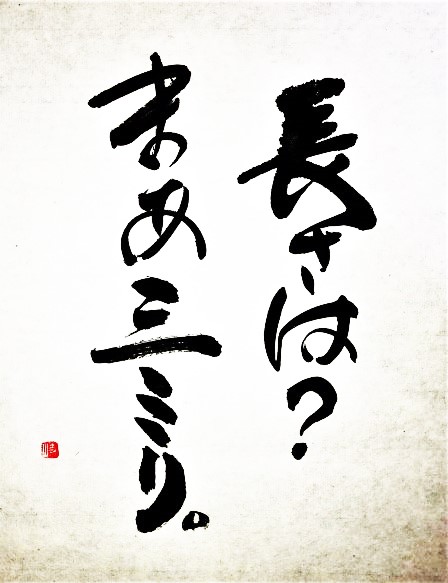 長さは？
まあ三ミリ。